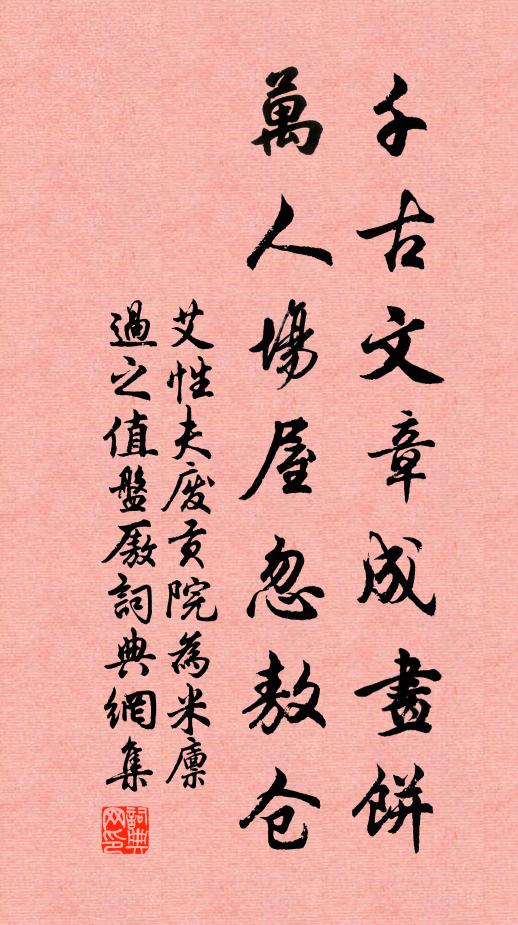 千古文章成畫餅
萬人場屋忽敖仓
艾性夫廢貢院為米廩
過之值盤厫詞典網集
詞典网印